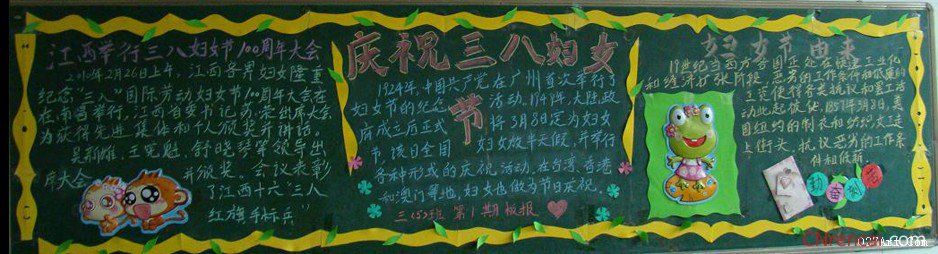 江西举行三八妇女节100周年大会
2010年2月26日上午,江西各界妇女隆重
纪念"三八"国际劳动妇女节100周年大会在
在南昌举行,江西省委书记苏荣出席大会
为获得先进集体和个人颁奖并讲话。
吴新雄、王宪魁、舒晓琴等领导出
席大会
并颁奖。会议表彰
了江西十六"三八
红旗手标兵"
庆祝三八妇女
节
1924年,中国共产党在广州首次举行了
妇女节的纪念活动。1949年,大陆政
府成立后正式将3月8日定为妇女
节,该日全国妇女放半天假,并举行
各种形式的庆祝活动,在台湾、香港
和澳门等地,妇女也做为节日庆祝。
三(5)班 第1期板报
妇女节由来
19世纪当西方各国正处在快速工业化
和经济扩张阶段,恶劣的工作条件和低廉的
工资使得各类抗议和罢工活
动此起彼伏,1857年3月8,美
国纽约的制衣和纺织女工走
上街头,抗议恶劣的工作条
件和低薪。
勤奋